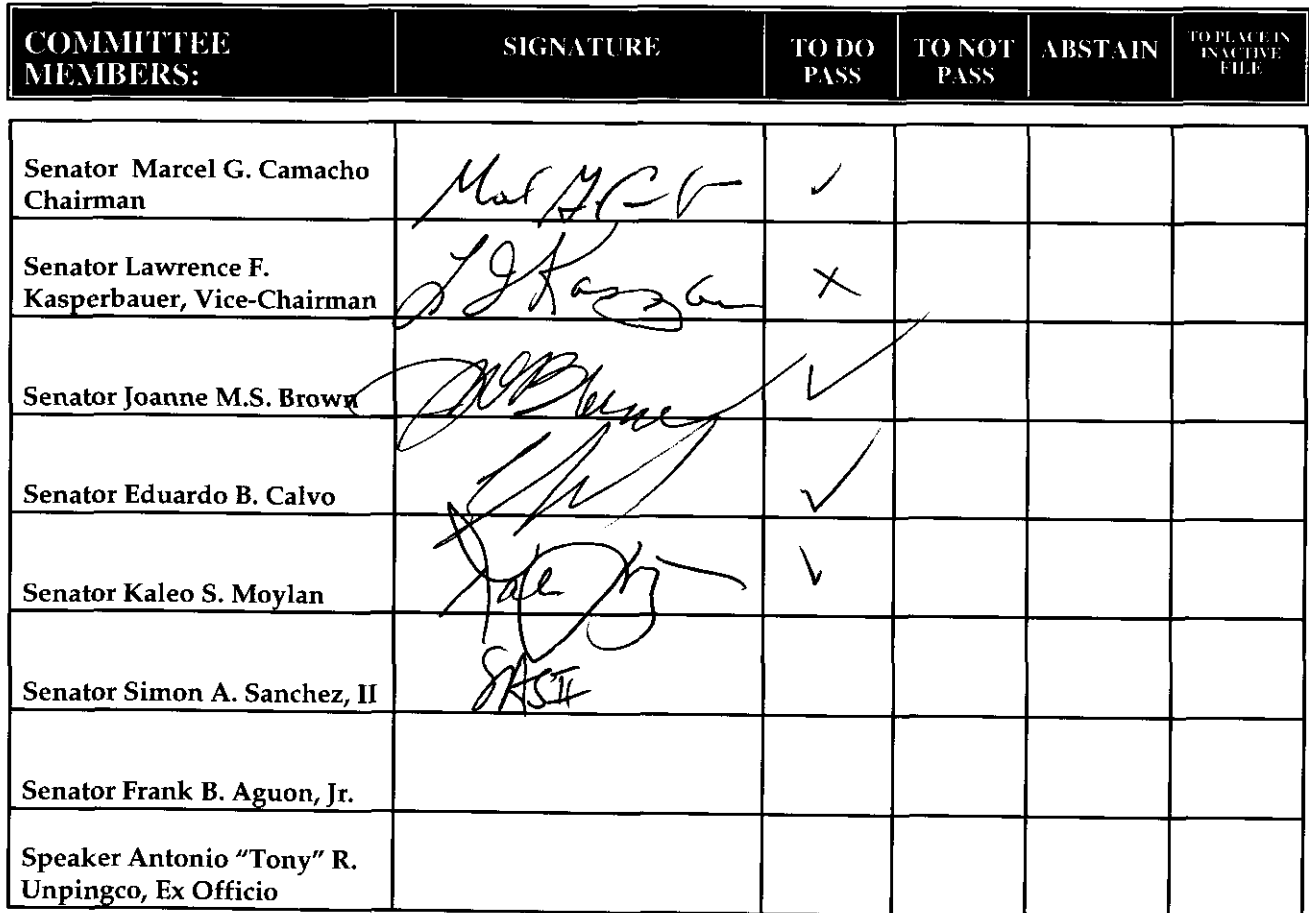 COMMITTEE MEMBERS: SIGNATURE TO DO PASS TO NOT PASS ABSTAIN TO PLACE IN INACTIVE FILE
Senator Marcel G. Camacho
Chairman ✓
Senator Lawrence F.
Kasperbauer, Vice-Chairman X
Senator Joanne M.S. Brown ✓
Senator Eduardo B. Calvo ✓
Senator Kaleo S. Moylan ✓
Senator Simon A. Sanchez, II SASII
Senator Frank B. Aguon, Jr.
Speaker Antonio "Tony" R.
Unpingco, Ex Officio